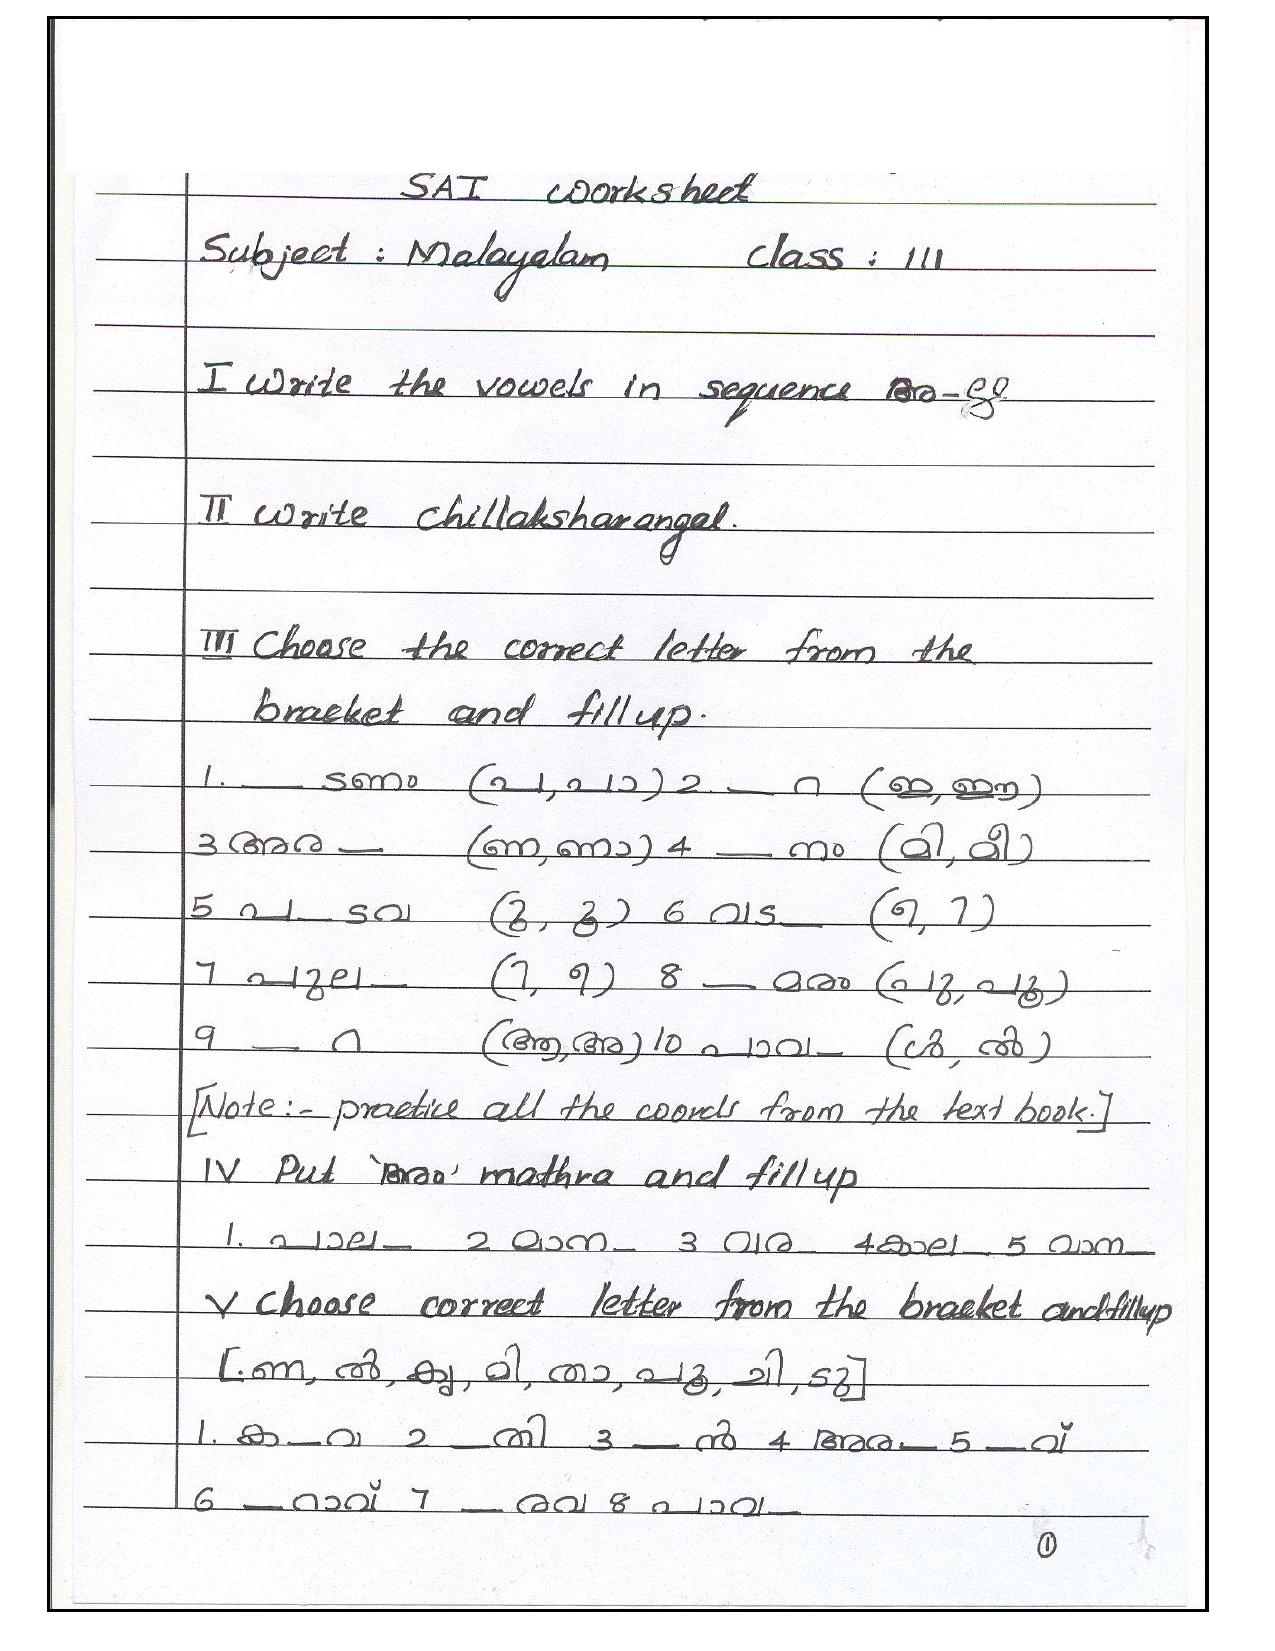 SAI Worksheet
Subject : Malayalam Class : III
I Write the vowels in sequence അ-ഋ
II Write chillaksharangal.
III Choose the correct letter from the
bracket and fill up.
1. __ ടണം (പ, പാ) 2. __ റ (ഇ, ഈ)
3 അര __ (ണ, ണാ) 4 __ നം (മി, മീ)
5 പ __ ടവ (ു, ൂ) 6 വട __ (ി, ീ)
7 പുല __ (ി, ീ) 8 __ മരം (പു, പൂ)
9 __ റ (ആ, അ) 10 പാവ __ (ൾ, ൽ)
[Note:- practice all the words from the text book.]
IV Put 'അം' mathra and fill up
1. പാല __ 2 മാന __ 3 വര __ 4 കാല __ 5 വാന __
V Choose correct letter from the bracket and fill up
[ണ, ൽ, കൃ, മി, താ, പൂ, ചി, ടു]
1. ക __ വ 2 __ തി 3 __ ൻ 4 അര __ 5 __ വ്
6 __ റാവ് 7 __ രവ 8 പാവ __
1